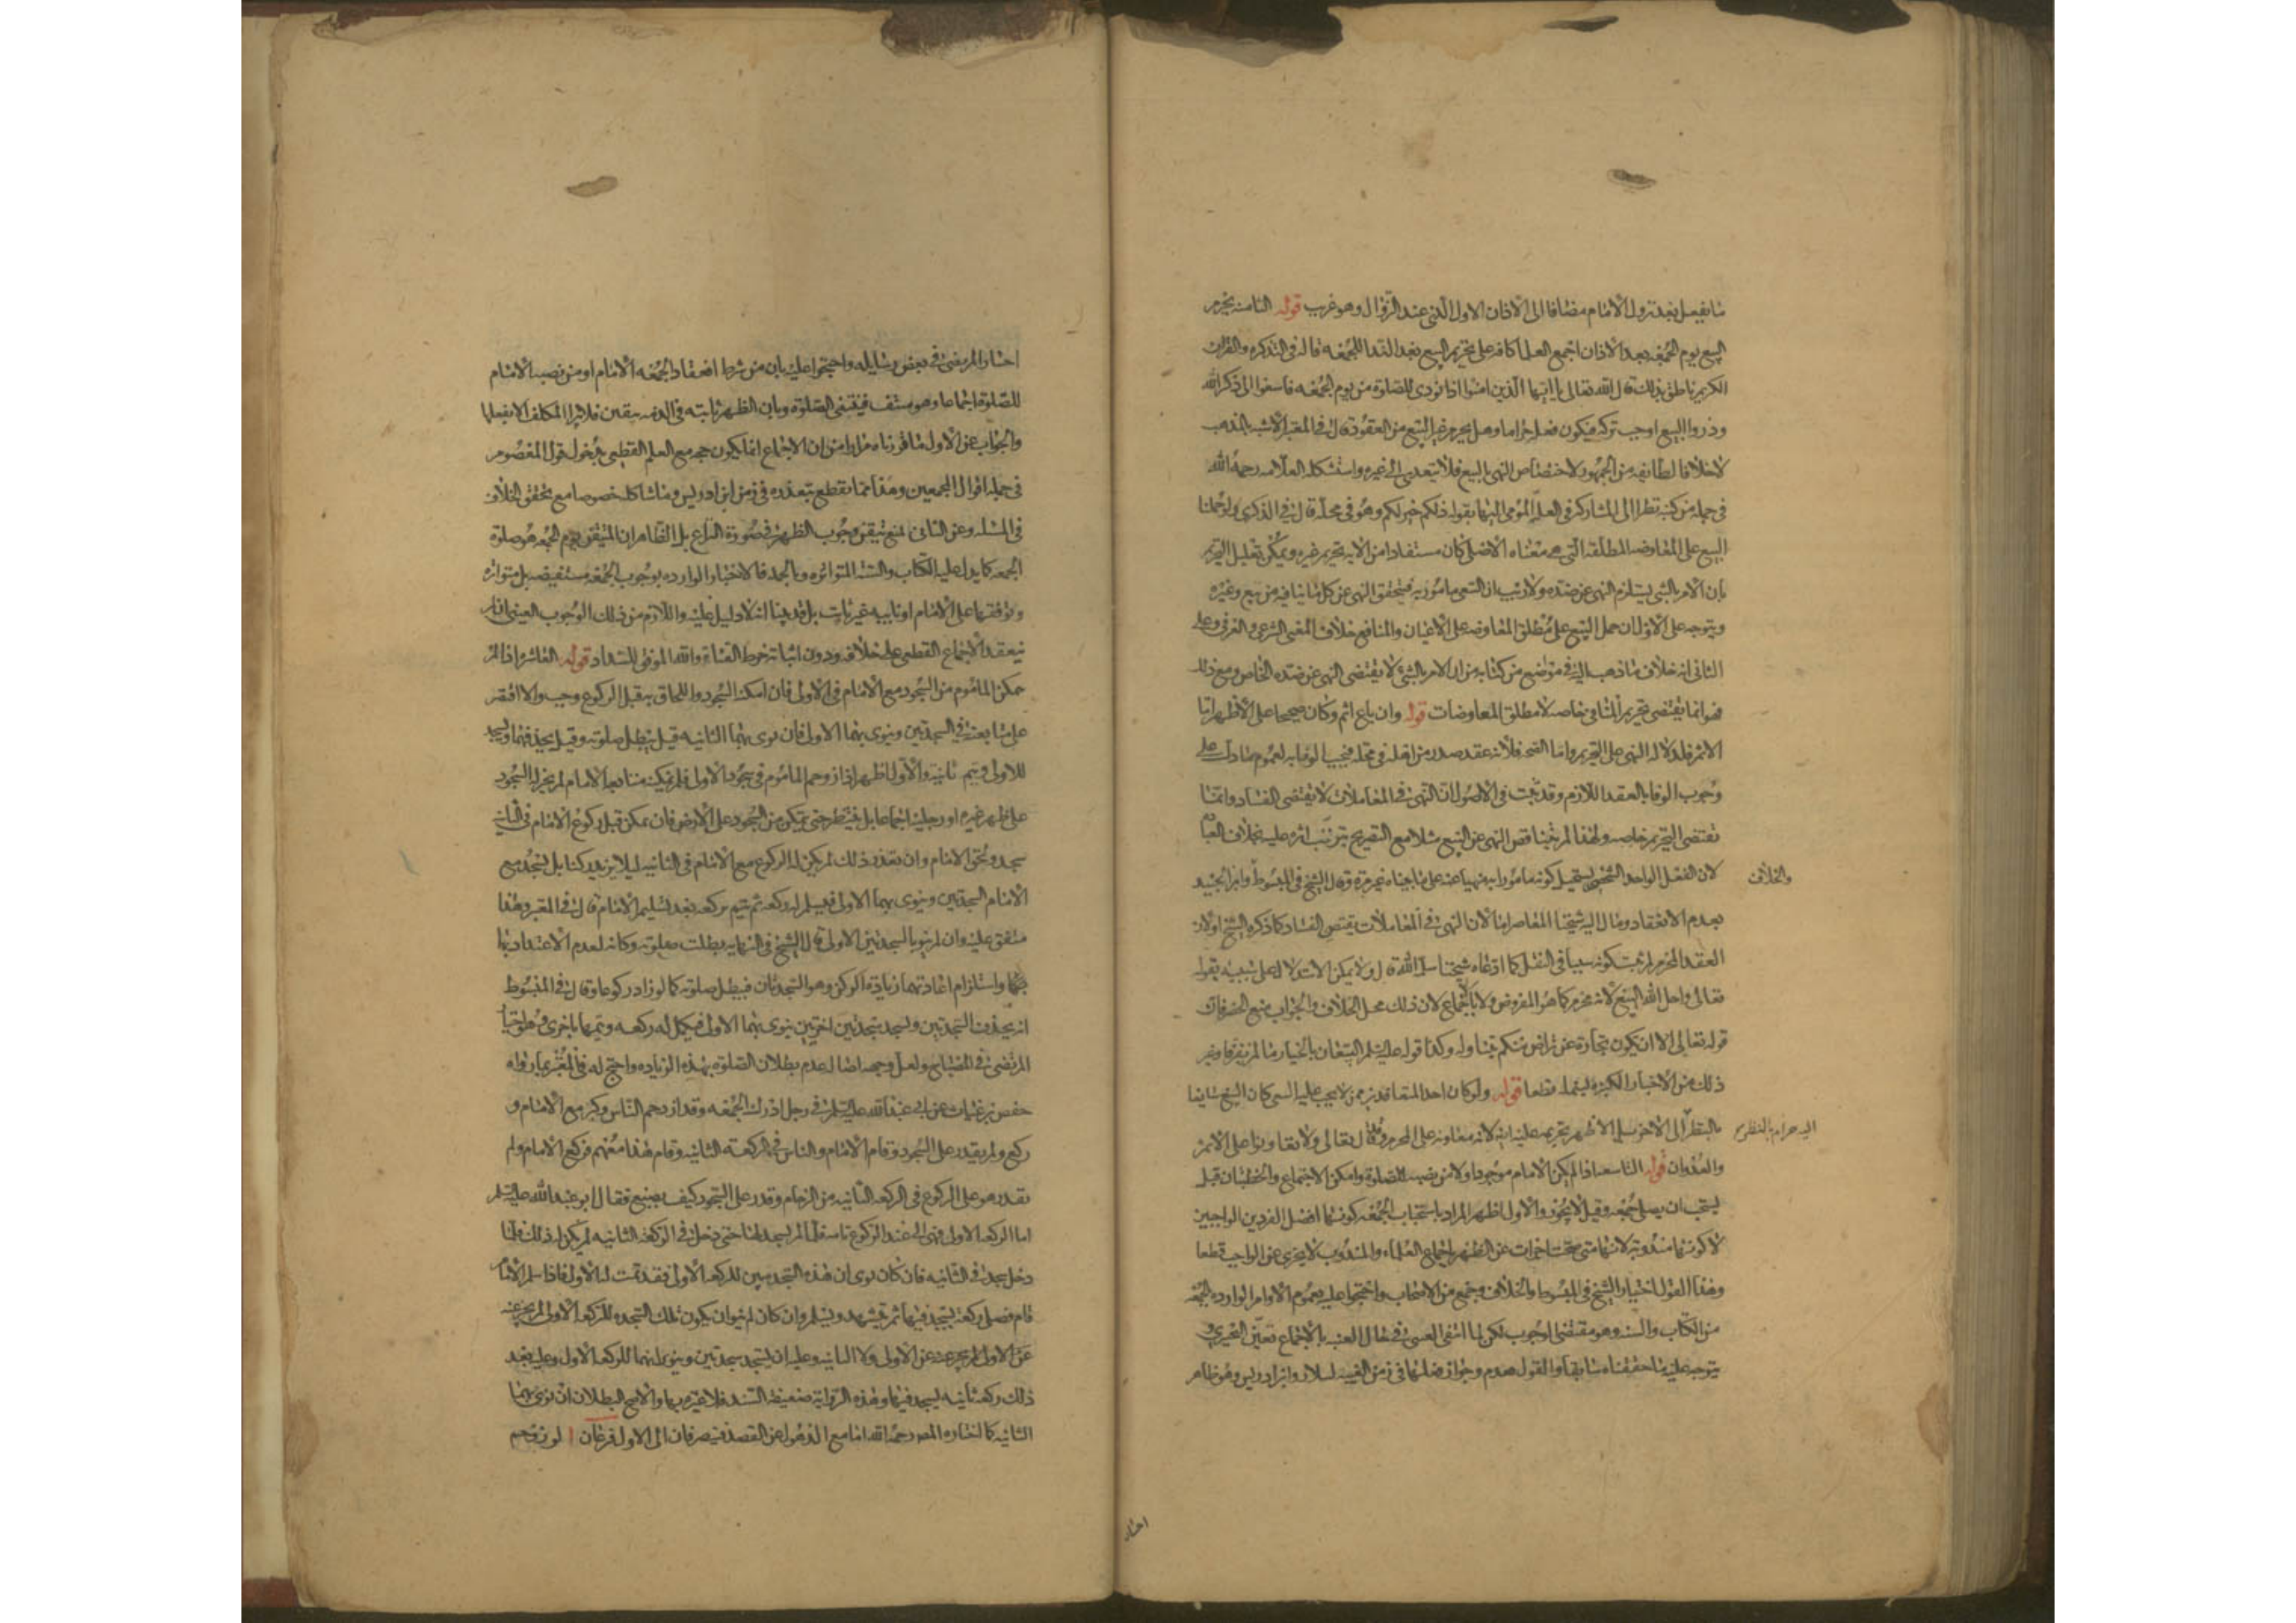 ما يفعل بعد نزول الامام مضافا الى الاذان الاول الذي عند الزوال وهو غريب قوله الثامنه يحرم
البيع يوم الجمعه بعد الاذان اجمع العلما كافه على تحريم البيع بعد الندا للجمعه قاله في التذكره والقران
الكريم ناطق بذلك قال الله تعالى يا ايها الذين امنوا اذا نودى للصلوة من يوم الجمعه فاسعوا الى ذكر الله
وذروا البيع اوجب تركه فيكون فعله حراما وهل يحرم غير البيع من العقود قال في المعتبر الاشبه بالمذهب
لا خلافا لطائفه من الجمهور لاختصاص النهى بالبيع فلا يتعدى الى غيره واستشكله العلامه رحمه الله
في جمله من كتبه نظرا الى المشاركه في العله المؤمى اليها بقوله ذلكم خير لكم وهو في محله قال في الذكرى ولو حملنا
البيع على المعاوضه المطلقه التى هى معناه الاصلى كان مستفادا من الايه تحريم غيره ويمكن تعليل التحريم
بان الامر بالشى يستلزم النهى عن ضده ولا ريب ان السعى مامور به فيتحقق النهى عن كل ما ينافيه من بيع وغيره
ويتوجه على الاول ان حمل البيع على مطلق المعاوضه على الاعيان والمنافع خلاف المعنى الشرعى والعرفى وعلى
الثانى انه خلاف ما ذهب اليه في مواضع من كتابه من ان الامر بالشئ لا يقتضى النهى عن ضده الخاص ومع ذلك
فهو انما يقتضى تحريم المنافى خاصه لا مطلق المعاوضات قوله وان باع اثم وكان صحيحا على الاظهر اما
الاثم فلدلاله النهى على التحريم واما الصحه فلانه عقد صدر من اهله في محله فيجب الوفا به لعموم ما دل على
وجوب الوفا بالعقد اللازم وقد ثبت في الاصول ان النهى في المعاملات لا يقتضى الفساد وانما
تقتضى التحريم خاصه ولهذا لم يتناقض النهى عن البيع مثلا مع التصريح بترتب اثره عليه بخلاف العباده
لان الفعل الواحد الشخصى يستحيل كونه مامورا به منهيا عنه على ما بيناه غير مرة وقال الشيخ في المبسوط وابن الجنيد
والخلاف
بعدم الانعقاد ومال اليه شيخنا المعاصر اما لان النهى في المعاملات يقتضى الفساد كما ذكره الشيخ او لان
العقد المحرم لم يثبت كونه سببا في النقل كما ادعاه شيخنا سلمه الله قال ولا يمكن الاستدلال على سببيته بقوله
تعالى واحل الله البيع لانه محرم كما هو المفروض ولا بالاجماع لان ذلك محل الخلاف والجواب منع الحصر فان
قوله تعالى الا ان يكون تجارة عن تراض منكم يتناوله وكذا قوله عليه السلم البيعان بالخيار ما لم يفترقا وغير
ذلك من الاخبار الكثيره ليشمله قطعا قوله ولو كان احد المتعاقدين ممن لا يجب عليه السعى كان البيع سايغا
بالنظر الى الاخر بل الاظهر تحريمه عليه ايضا لانه معاونه على المحرم وقد قال تعالى ولا تعاونوا على الاثم
اليه حرام بالنظر
والعدوان قوله التاسعه اذا لم يكن الامام موجودا ولا من نصبه للصلوة وامكن الاجتماع والخطبتان قيل
يستحب ان يصلى جمعه وقيل لا يجوز والاول اظهر المراد باستحباب الجمعه كونها افضل الفردين الواجبين
لا كونها مندوبة لانها متى صحت اجزات عن الظهر باجماع العلماء والمندوب لا يجزى عن الواجب قطعا
وهذا القول اختيار الشيخ في المبسوط والخلاف وجمع من الاصحاب واحتجوا عليه بعموم الاوامر الوارده بالجمعه
من الكتاب والسنه وهو مقتضى الوجوب لكن لما انتفى العينى في حال الغيبه بالاجماع تعين التخييرى
يتوجه عليه ما حققناه سابقا والقول بعدم جواز فعلها في زمن الغيبه لسلار وابن ادريس وهو ظاهر
اختار
اختار المرتضى في بعض رسايله واحتجوا عليه بان من شرط انعقاد الجمعه الامام او من نصبه الامام
للصلوة اجماعا وهو منتف فينتفى الصلوة وبان الظهر ثابته في الذمه بيقين فلا يبرا المكلف الا بفعلها
والجواب عن الاول ما قررناه مرارا من ان الاجماع انما يكون حجه مع العلم القطعى بدخول قول المعصوم
في جمله اقوال المجمعين وهذا مما يقطع بتعذره في زمن ابن ادريس وما شاكله خصوصا مع تحقق الخلاف
في المسئله وعن الثانى بمنع تيقن وجوب الظهر في صورة النزاع بل الظاهر ان المتيقن يوم الجمعه هو صلوة
الجمعه كما يدل عليه الكتاب والسنه المتواتره وبالجمله فالاخبار الوارده بوجوب الجمعه مستفيضه بل متواتره
وتوقفها على الامام او نايبه غير ثابت بل قد بينا انه لا دليل عليه واللازم من ذلك الوجوب العينى ان لم
ينعقد الاجماع القطعى على خلافه ودون اثباته خرط القتاد والله الموفق للسداد قوله العاشره اذا لم
يمكن الماموم من السجود مع الامام في الاولى فان امكنه السجود واللحاق به قبل الركوع وجب والا اقتصر
على متابعته في السجدتين وينوى بهما الاولى فان نوى بهما الثانيه قيل تبطل صلوته وقيل يحذفهما ويسجد
للاولى ويتم ثانيه والاول اظهر اذا زوحم الماموم في سجود الاولى فلم يمكنه متابعه الامام لم يجز له السجود
على ظهر غيره او رجليه اجماعا بل ينتظر حتى يتمكن من السجود على الارض فان تمكن قبل ركوع الامام في الثانيه
سجد ولحق الامام وان تعذر ذلك لم يكن له الركوع مع الامام في الثانيه ليلا يزيد ركنا بل يسجد مع
الامام السجدتين وينوى بهما الاولى فيسلم له ركعه ثم يتم بركعه بعد تسليم الامام قال في المعتبر وهذا
متفق عليه وان لم ينو بالسجدتين الاولى قال الشيخ في النهايه بطلت صلوته وكانه لعدم الاعتداد بها
بهما واستلزام اعادتهما زيادة الركن وهو السجدتان فيبطل صلوته كما لو زاد ركوعا وقال في المبسوط
انه يحذف السجدتين ويسجد سجدتين اخريين ينوى بهما الاولى فيكمل له ركعه ويتمها باخرى
المرتضى في المصباح ولعل وجهه اصاله عدم بطلان الصلوة بهذه الزياده واحتج له في المعتبر بما رواه
حفص بن غياث عن ابى عبد الله عليه السلم في رجل ادرك الجمعه وقد ازدحم الناس وكبر مع الامام و
ركع ولم يقدر على السجود وقام الامام والناس في الركعه الثانيه وقام هذا معهم فركع الامام ولم
يقدر هو على الركوع في الركعه الثانيه من الزحام وقدر على السجود كيف يصنع فقال ابو عبد الله عليه السلم
اما الركعه الاولى فهى الى عند الركوع تامه فلما لم يسجد لها حتى دخل في الركعه الثانيه لم يكن له ذلك فلما
دخل سجد في الثانيه فان كان نوى ان هذه السجدتين للركعه الاولى فقد تمت له الاولى فاذا سلم الامام
قام فصلى ركعه يسجد فيها ثم يتشهد ويسلم وان كان لم ينو ان يكون تلك السجده للركعه الاولى لم يجز عنه
عن الاولى لم يجز عنه عن الاولى ولا الثانيه وعليه ان يسجد سجدتين وينوى انهما للركعه الاولى وعليه بعد
ذلك ركعه ثانيه يسجد فيها وهذه الروايه ضعيفه السند فلا عبره بها والاصح البطلان ان نوى بهما
الثانيه كما اختاره المصـ رحمه الله اما مع الذهول عن القصد فينصرفان الى الاولى فرعان ا لو زوحم